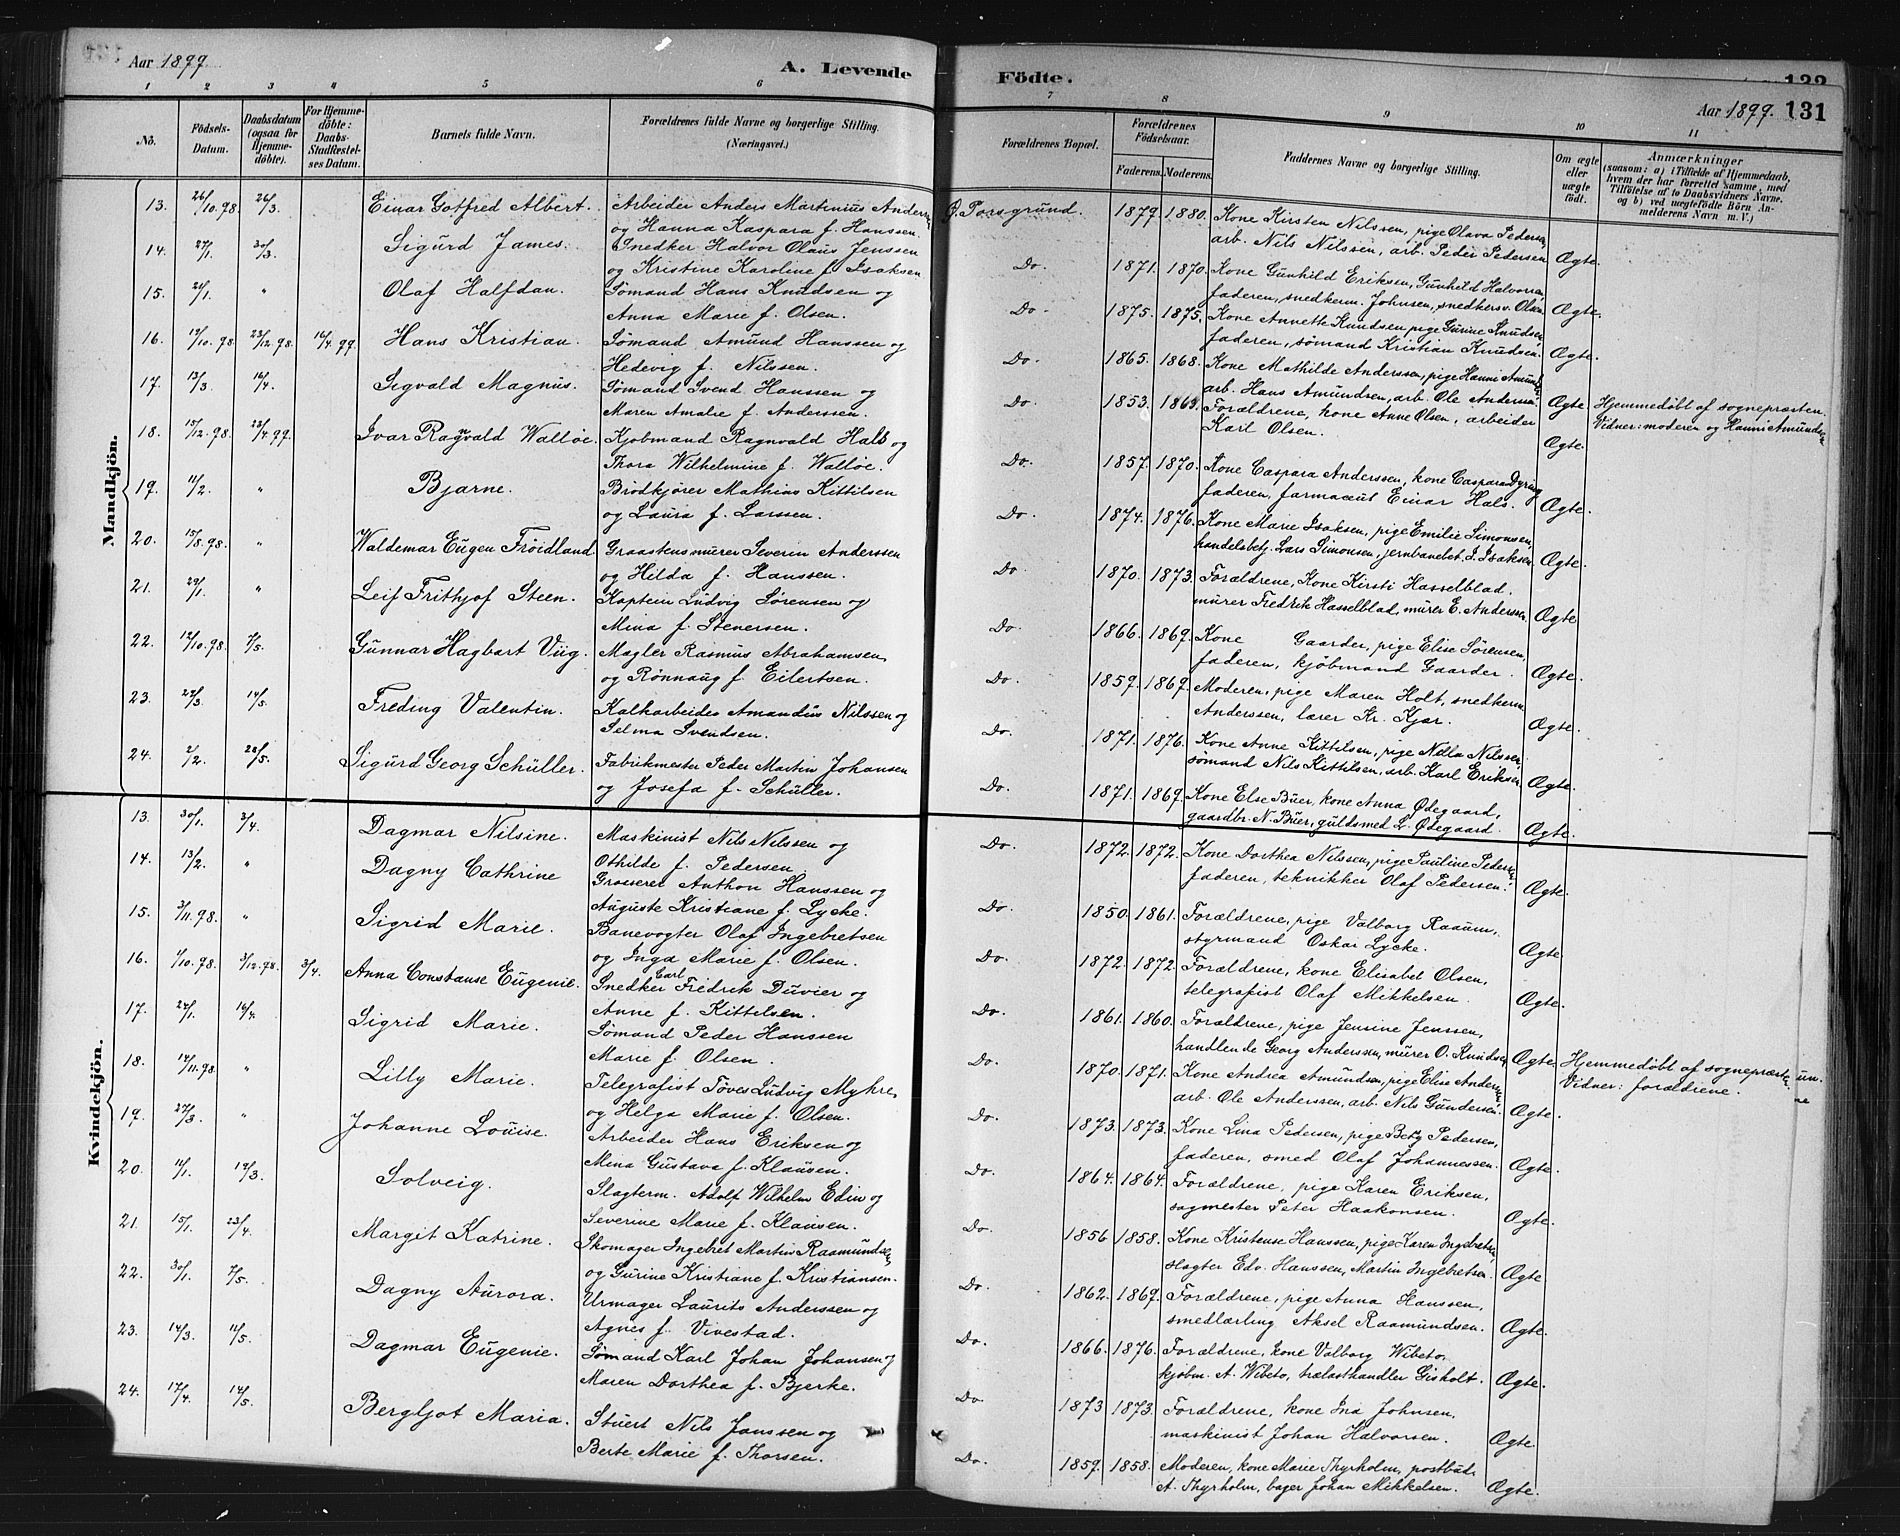 Aar 1899.
A. Levende
Födte.
Aar 1899. 131
1 2 3 4 5 6
7 8 9 10 11
No.
Födsels-Datum.
Daabsdatum (ogsaa for Hjemme-döbte).
For Hjemme-döbte: Daabs-Stadfæstel-ses Datum.
Barnets fulde Navn.
Forældrenes fulde Navne og borgerlige Stilling. (Næringsvei.)
Forældrenes Bopæl.
Forældrenes Födselsaar.
Faderens. Moderens.
Faddernes Navne og borgerlige Stilling.
Om ægte eller uægte födt.
Anmærkninger
(saasom: a) i Tilfælde af Hjemmedaab, hvem der har forrettet samme, med Tilföielse af to Daabsvidners Navne, og b) ved uægtefödte Börn An-melderens Navn m. V.)
Mandkjön.
13. 26/10.98. 26/3. Einar Gotfred Albert. Arbeider Anders Martinius Anderssen
og Hanna Kaspara f. Hanssen.
Ø. Porsgrund. 1879. 1880. Kone Kirsten Nilssen, pige Olava Pedersen,
arb. Nils Nilssen, arb. Peder Pedersen Ægte.
14. 27/1. 30/3. Sigurd James. Snedker Halvor Olaus Jenssen
og Kristine Karoline f. Isaksen
Do. 1871. 1870. Kone Gunhild Eriksen, Gunhild Halvorsen,
faderen, snedkerm. Johnsen, snedkersv. Olsen Ægte.
15. 21/1. " Olaf Halfdan. Sømand Hans Knudsen og
Anna Marie f. Olsen.
Do. 1875. 1875. Kone Annette Knudsen, pige Gurine Knudsen,
faderen, sømand Kristian Knudsen. Ægte.
16. 19/10.98. 23/12.98. 16/4.99. Hans Kristian. Sømand Amund Hanssen og
Hedevig f. Nilssen.
Do. 1865. 1868. Kone Mathilde Anderssen, pige Hanni Amundsen
arb. Hans Amundsen, arb. Ole Anderssen. Ægte. Hjemmedøbt af sognepræsten.
Vidner: moderen og Hanni Amundsen
17. 13/3. 16/4. Sigvald Magnus. Sømand Svend Hanssen og
Maren Amalie f. Anderssen.
Do. 1853. 1863. Forældrene, kone Anne Olsen, arbeider
Karl Olsen. Ægte.
18. 15/12.98. 23/4.99. Ivar Ragnvald Walløe. Kjøbmand Ragnvald Hals og
Thora Wilhelmine f. Walløe.
Do. 1857. 1870. Kone Caspara Anderssen, kone Caspara Dyring
faderen, farmaceut Einar Hals. Ægte.
19. 11/2. " Bjarne. Brødkjører Mathias Kittilsen
og Laura f. Larssen.
Do. 1874. 1876. Kone Marie Isaksen, pige Emilie Simonsen,
handelsbetj. Lars Simonsen, jernbanebet. I. Isaksen Ægte.
20. 15/8.98. " Waldemar Eugen Frøidland Graastensmurer Severin Anderssen
og Hilda f. Hanssen.
Do. 1870. 1873. Forældrene, Kone Kirsti Hasselblad.
murer Fredrik Hasselblad, murer E. Anderssen. Ægte.
21. 29/1. " Leif Frithjof Steen. Kaptein Ludvig Sørensen og
Mina f. Stenersen.
Do. 1866. 1869. Kone Gaarder, pige Elise Sörensen,
faderen, kjøbmand Gaarder. Ægte.
22. 12/10.98. 7/5. Gunnar Hagbart Viig. Mægler Rasmus Abrahamsen
og Rønnaug f. Eilertsen.
Do. 1859. 1869. Moderen, pige Maren Holt, snedkerm.
Anderssen, lærer Kr. Kjær. Ægte.
23. 22/3. 14/5. Freding Valentin. Kalkarbeider Amandus Nilssen og
Selma Svendsen.
Do. 1871. 1876. Kone Anne Kittilsen, pige Nella Nilssen,
sømand Nils Kittilsen, arb. Karl Eriksen. Ægte.
24. 2/2. 28/5. Sigurd Georg Schüller. Fabrikmester Peder Martin Johansen
og Josefa f. Schüller.
Do. 1871. 1869. Kone Else Buer, kone Anna Ødegaard,
gaardbr. N. Buer, guldsmed L. Ødegaard. Ægte.
Kvindekjön.
13. 30/1. 3/4. Dagmar Nilsine. Maskinist Nils Nilssen og
Othilde f. Pedersen
Do. 1872. 1872. Kone Dorthea Nilssen, pige Pauline Pedersen,
faderen, tekniker Olaf Pedersen. Ægte.
14. 13/2. " Dagny Cathrine Grosserer Anthon Hanssen og
Auguste Kristiane f. Lycke.
Do. 1850. 1861. Forældrene, pige Valborg Raaum,
styrmand Oskar Lycke. Ægte
15. 3/11.98. " Sigrid Marie. Banevogter Olaf Ingebretsen
og Inga Marie f. Olsen.
Do. 1872. 1872. Forældrene, kone Elisabet Olsen,
telegrafist Olaf Mikkelsen. Ægte.
16. 1/10.98. 3/12.98. 3/4. Anna Constanse Eugenie. Snedker Carl Fredrik Duvier og
Anne f. Kittelsen.
Do. 1861. 1860. Forældrene, pige Jensine Jenssen,
handlende Georg Anderssen, murer O. Knudsen Ægte. Hjemmedøbt af sognepræsten.
Vidner: forældrene.
17. 24/1. 16/4. Sigrid Marie. Sømand Peder Hanssen
Marie f. Olsen.
Do. 1870. 1871. Kone Andrea Amundsen, pige Elise Anderssen
arb. Ole Anderssen, arb. Nils Gundersen. Ægte.
18. 14/11.98. " Lilly Marie. Telegrafist Töves Ludvig Myhre,
og Helga Marie f. Olsen.
Do. 1873. 1873. Kone Lina Pedersen, pige Betzy Pedersen,
faderen, smed Olaf Johannessen. Ægte.
19. 27/3. " Johanne Louise. Arbeider Hans Eriksen og
Mina Gustava f. Klausen.
Do. 1864. 1864. Forældrene, pige Karen Eriksen,
sagmester Peter Haakonsen. Ægte.
20. 11/1. 19/3. Solveig. Slagterm. Adolf Wilhelm Edin og
Severine Marie f. Klausen.
Do. 1856 1858. Kone Kristense Hanssen, pige Karen Ingebretsen,
slagter Edv. Hanssen, Martin Ingebretsen. Ægte
21. 15/1. 23/4. Margit Katrine. Skomager Ingebret Martin Raamundsen
og Gurine Kristiane f. Kristiansen.
Do. 1862. 1869. Forældrene, pige Anna Hanssen,
smedlærling Aksel Raamundsen. Ægte.
22. 30/1. 7/5. Dagny Aurora. Urmager Laurits Anderssen og
Agnes f. Vivestad.
Do. 1866. 1876. Forældrene, kone Valborg Wibeto,
kjøbm. A. Wibeto, trælasthandler Gisholt. Ægte.
23. 14/3. 11/5. Dagmar Eugenie. Sømand Karl Johan Johansen og
Maren Dorthea f. Bjerke.
Do. 1873 1873. Forældrene, kone Ina Johnsen,
maskinist Johan Halvorsen. Ægte
24. 17/4. 14/5. Bergljot Maria. Stuert Nils Janssen og
Berte Marie f. Thorsen.
Do. 1859. 1858. Moderen, kone Marie Thyrholm, postbud
A. Thyrholm, bager Johan Mikkelsen. Ægte.